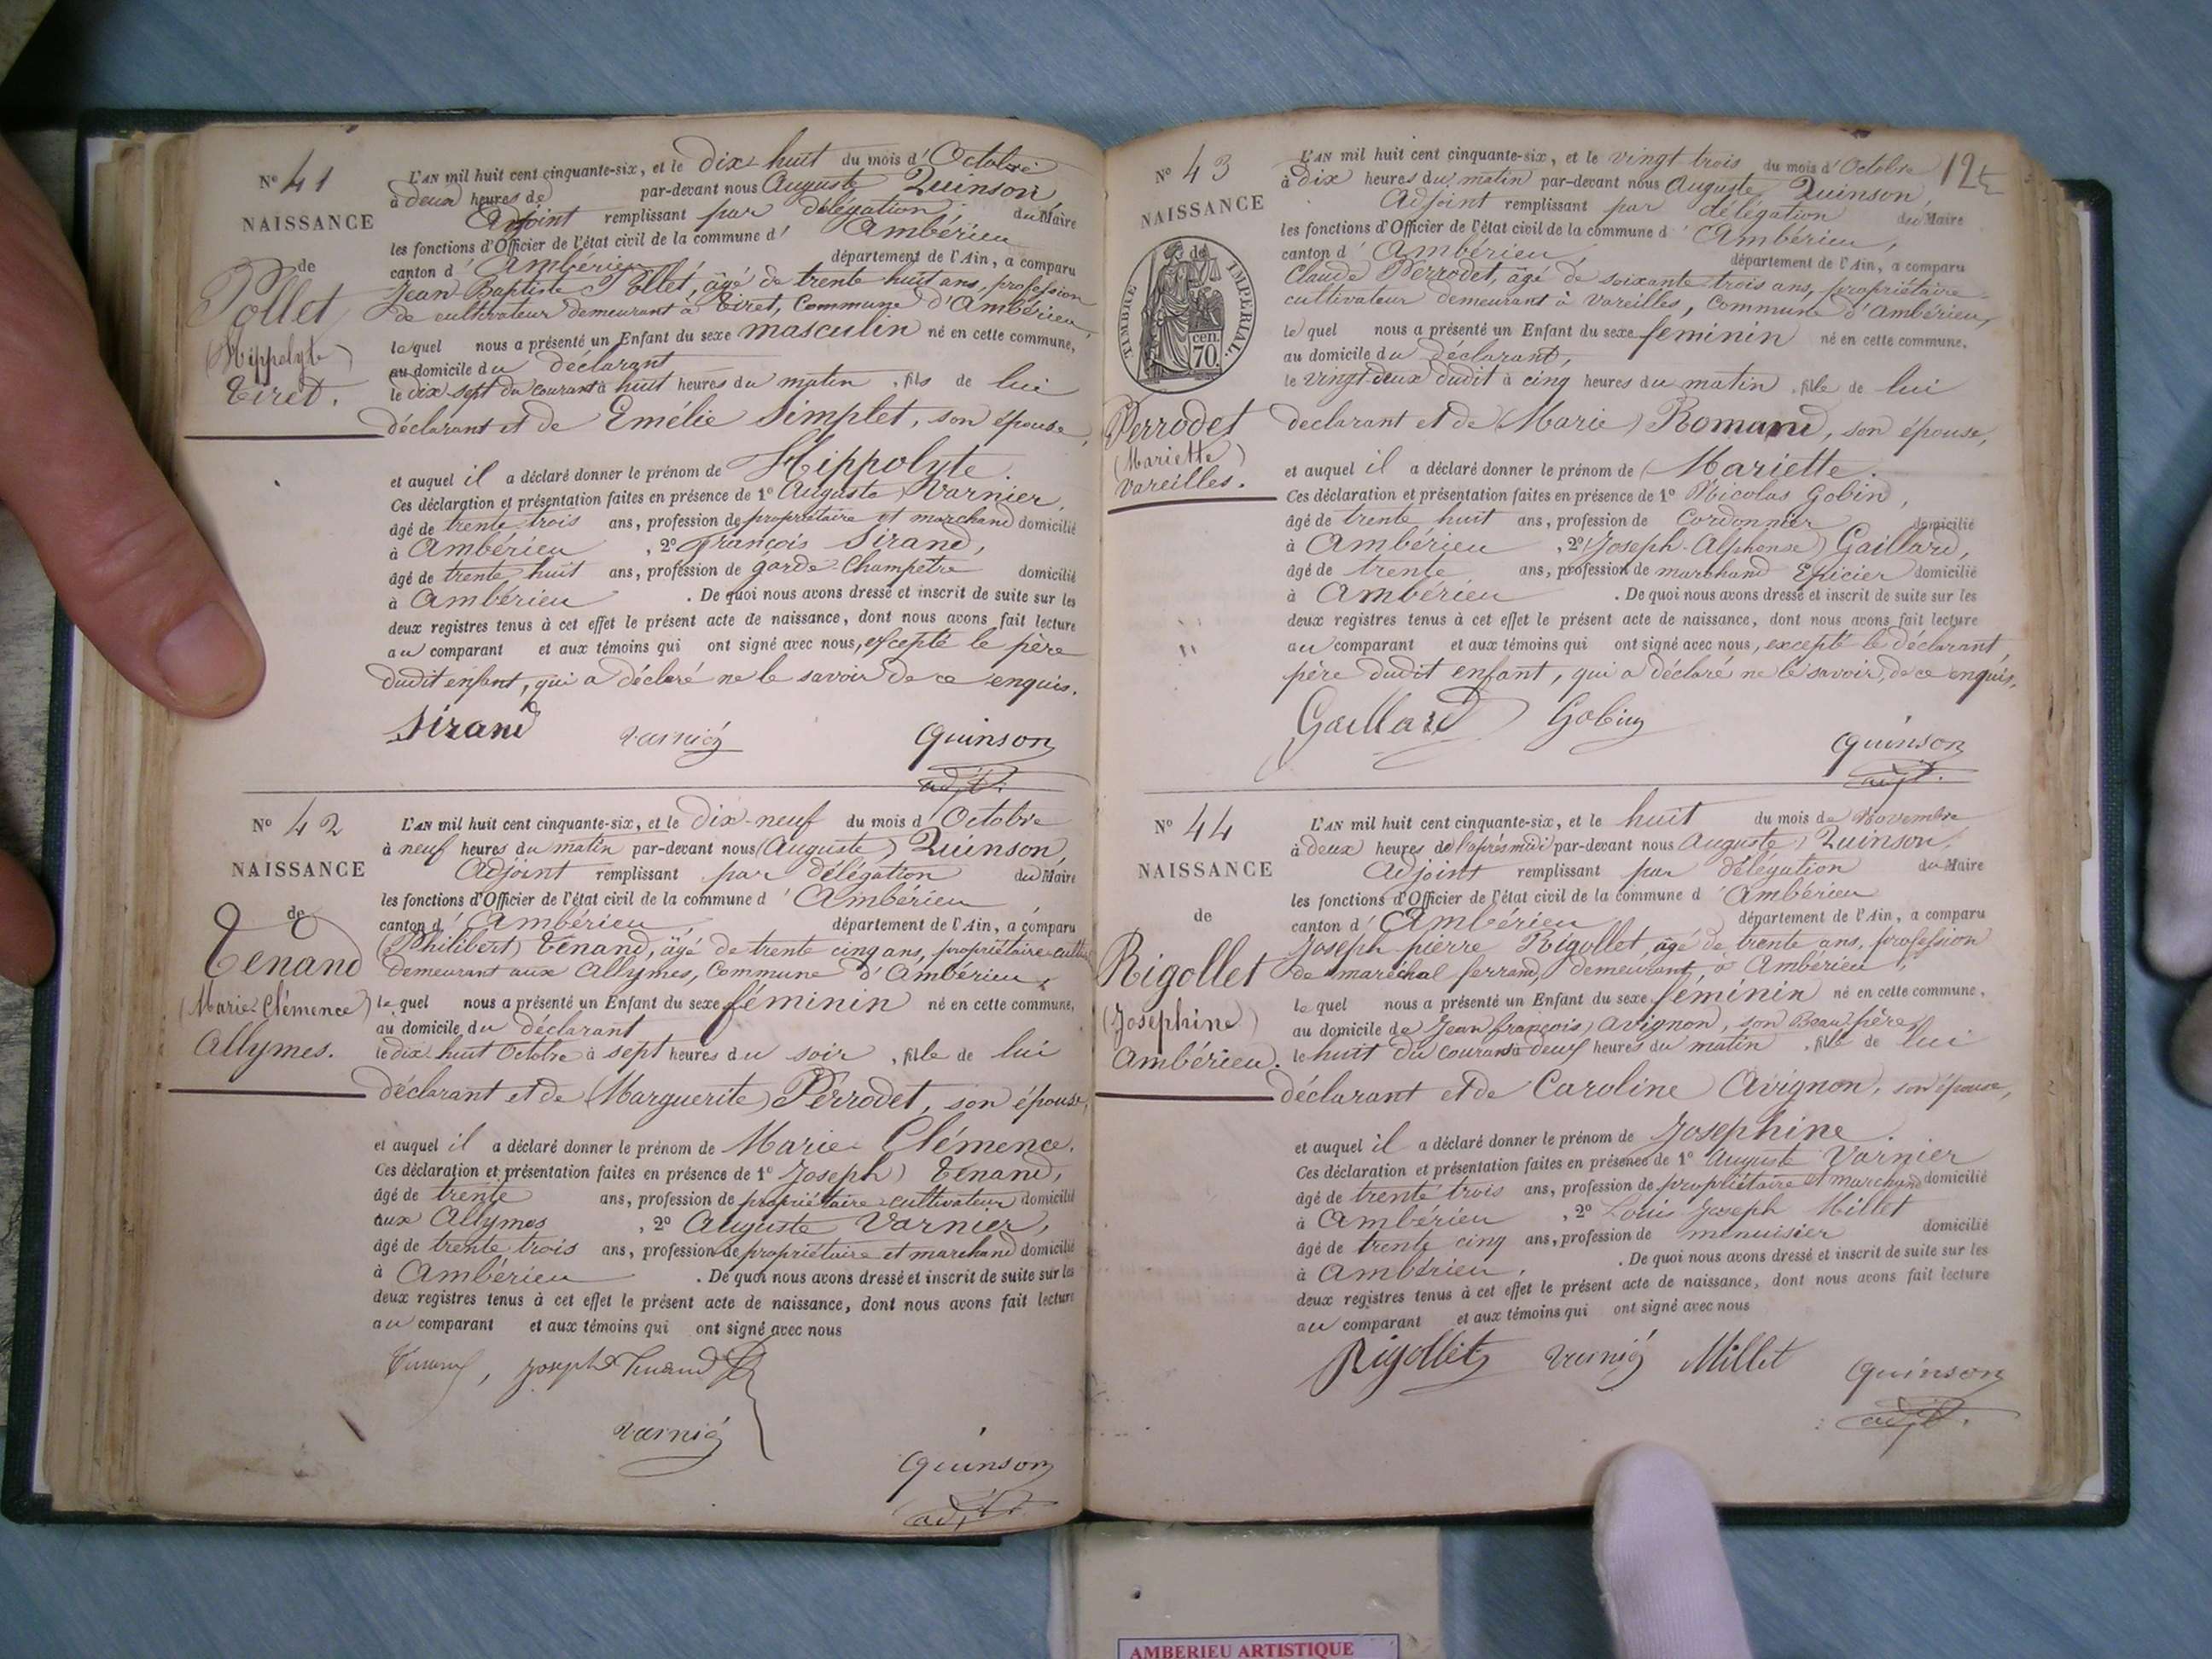 N° 41
NAISSANCE
de
Pollet
(Hippolyte)
Tiret.
L'AN mil huit cent cinquante-six, et le dix-huit du mois d'Octobre
à deux heures de par-devant nous Auguste Quinson,
Adjoint remplissant par délégation du Maire
les fonctions d'Officier de l'état civil de la commune d'Ambérieu
canton d'Ambérieu, département de l'Ain, a comparu
Jean-Baptiste Pollet, âgé de trente huit ans, profession
de cultivateur demeurant à Tiret, Commune d'Ambérieu,
lequel nous a présenté un Enfant du sexe masculin né en cette commune,
au domicile du déclarant
le dix-sept du courant à huit heures du matin, fils de lui
déclarant et de Emélie Simplet, son épouse,
et auquel il a déclaré donner le prénom de Hippolyte.
Ces déclaration et présentation faites en présence de 1° Auguste Varnier,
âgé de trente trois ans, profession de propriétaire et marchand domicilié
à Ambérieu, 2° François Sirand,
âgé de trente huit ans, profession de garde-Champêtre domicilié
à Ambérieu. De quoi nous avons dressé et inscrit de suite sur les
deux registres tenus à cet effet le présent acte de naissance, dont nous avons fait lecture
au comparant et aux témoins qui ont signé avec nous, excepté le père
dudit enfant, qui a déclaré ne le savoir de ce enquis.
Sirand Varnier Quinson
adjt.
N° 42
NAISSANCE
de
Tenand
(Marie-Clémence)
Allymes.
L'AN mil huit cent cinquante-six, et le dix-neuf du mois d'Octobre
à neuf heures du matin par-devant nous (Auguste) Quinson,
Adjoint remplissant par délégation du Maire
les fonctions d'Officier de l'état civil de la commune d'Ambérieu
canton d'Ambérieu, département de l'Ain, a comparu
(Philibert) Tenand, âgé de trente cinq ans, propriétaire-cultiv
demeurant aux Allymes, Commune d'Ambérieu,
lequel nous a présenté un Enfant du sexe féminin né en cette commune,
au domicile du déclarant
le dix-huit Octobre à sept heures du soir, fille de lui
déclarant et de (Marguerite) Perrodet, son épouse,
et auquel il a déclaré donner le prénom de Marie-Clémence.
Ces déclaration et présentation faites en présence de 1° Joseph) Tenand,
âgé de trente ans, profession de propriétaire cultivateur domicilié
aux Allymes, 2° Auguste Varnier,
âgé de trente trois ans, profession de propriétaire et marchand domicilié
à Ambérieu. De quoi nous avons dressé et inscrit de suite sur les
deux registres tenus à cet effet le présent acte de naissance, dont nous avons fait lecture
au comparant et aux témoins qui ont signé avec nous
Tenand, Joseph Tenand
Varnier
Quinson
adjt.
12
N° 43
NAISSANCE
de
TIMBRE IMPERIAL.
70 cen.
Perrodet
(Mariette)
Vareilles.
L'AN mil huit cent cinquante-six, et le vingt trois du mois d'Octobre
à dix heures du matin par-devant nous Auguste Quinson,
Adjoint remplissant par délégation du Maire
les fonctions d'Officier de l'état civil de la commune d'Ambérieu,
canton d'Ambérieu, département de l'Ain, a comparu
Claude Perrodet, âgé de soixante-trois ans, propriétaire-
cultivateur demeurant à Vareilles, Commune d'Ambérieu,
lequel nous a présenté un Enfant du sexe feminin né en cette commune,
au domicile du déclarant,
le vingt-deux dudit à cinq heures du matin, fille de lui
declarant et de (Marie) Romand, son épouse,
et auquel il a déclaré donner le prénom de (Mariette.
Ces déclaration et présentation faites en présence de 1° Nicolas Gobin,
âgé de trente huit ans, profession de Cordonnier domicilié
à Ambérieu, 2° (Joseph-Alphonse) Gaillard,
âgé de trente ans, profession de marchand Epicier domicilié
à Ambérieu. De quoi nous avons dressé et inscrit de suite sur les
deux registres tenus à cet effet le présent acte de naissance, dont nous avons fait lecture
au comparant et aux témoins qui ont signé avec nous, excepté le déclarant,
père dudit enfant, qui a déclaré ne le savoir, de ce enquis.
Gaillard Gobin
Quinson
adjt.
N° 44
NAISSANCE
de
Rigollet
(Josephine)
Ambérieu.
L'AN mil huit cent cinquante-six, et le huit du mois de Novembre
à deux heures de l'après midi par-devant nous Auguste Quinson,
Adjoint remplissant par délégation du Maire
les fonctions d'Officier de l'état civil de la commune d'Ambérieu
canton d'Ambérieu département de l'Ain, a comparu
Joseph pierre Rigollet, âgé de trente ans, profession
de maréchal ferrand, demeurant à Ambérieu,
lequel nous a présenté un Enfant du sexe féminin né en cette commune,
au domicile de Jean françois Avignon, son Beau-père,
le huit du courant à deux heures du matin, fille de lui
déclarant et de Caroline Avignon, son épouse,
et auquel il a déclaré donner le prénom de Josephine.
Ces déclaration et présentation faites en présence de 1° Auguste Varnier
âgé de trente trois ans, profession de propriétaire et marchand domicilié
à Ambérieu, 2° Louis Joseph Millet
âgé de trente cinq ans, profession de menuisier domicilié
à Ambérieu. De quoi nous avons dressé et inscrit de suite sur les
deux registres tenus à cet effet le présent acte de naissance, dont nous avons fait lecture
au comparant et aux témoins qui ont signé avec nous
Rigollet Varnier Millet Quinson
adjt.
AMBERIEU ARTISTIQUE